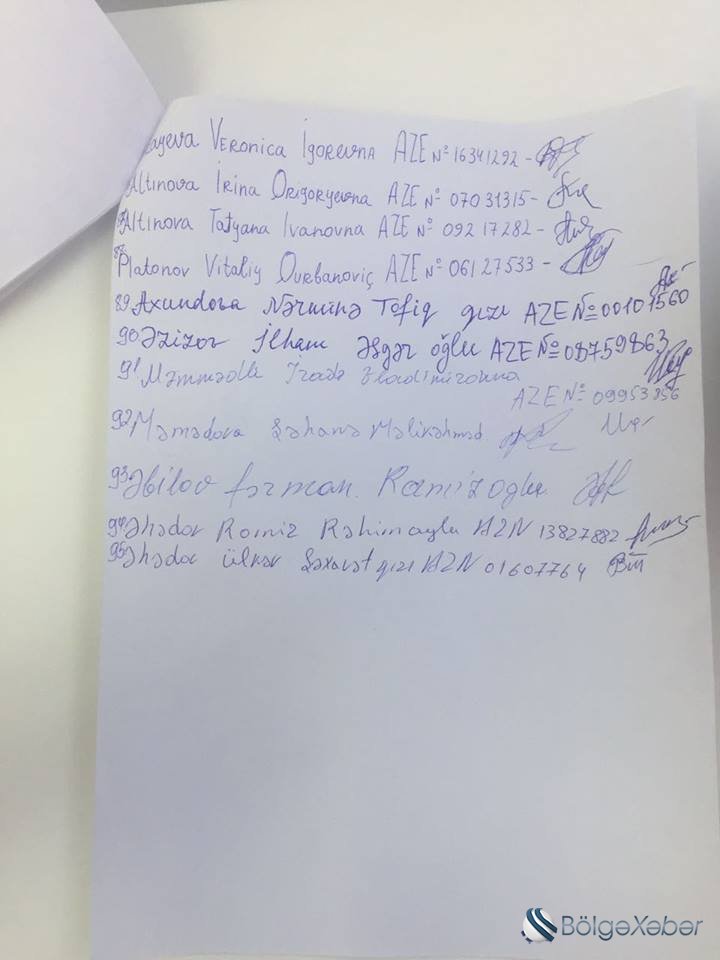 ayeva Veronica İgorevna AZE № 16341292 -
Altınova İrina Qriqoryevna AZE № 07031315 -
Altınova Tatyana Ivanovna AZE № 09217282 -
88 Platonov Vitaliy Qurbanoviç AZE № 06127533 -
89. Axundova Nərminə Tofiq qızı AZE № 00101560
90. Əzizov İlham Əsgər oğlu AZE № 08759863
91 Məmmədli İradə Vladimirovna
AZE № 09953856
92 Məmədova Şəhanə Məlikəhməd
93 Əbilov fərman. Ramizoglu
94 Əhədov Ramiz Rəhimoglu AZN 13827882
95 Əhədov ülkər Səxavət qızı AZN 01607764
BölgəXəbər